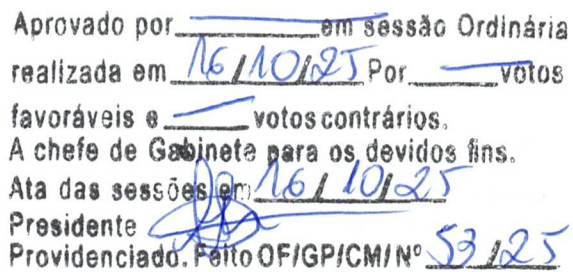 Aprovado por ______ em sessão Ordinária
realizada em 16/10/25 Por ______ votos
favoráveis e ______ votos contrários.
A chefe de Gabinete para os devidos fins.
Ata das sessões em 16/10/25
Presidente
Providenciado. Feito OF/GP/CM/Nº 53/25